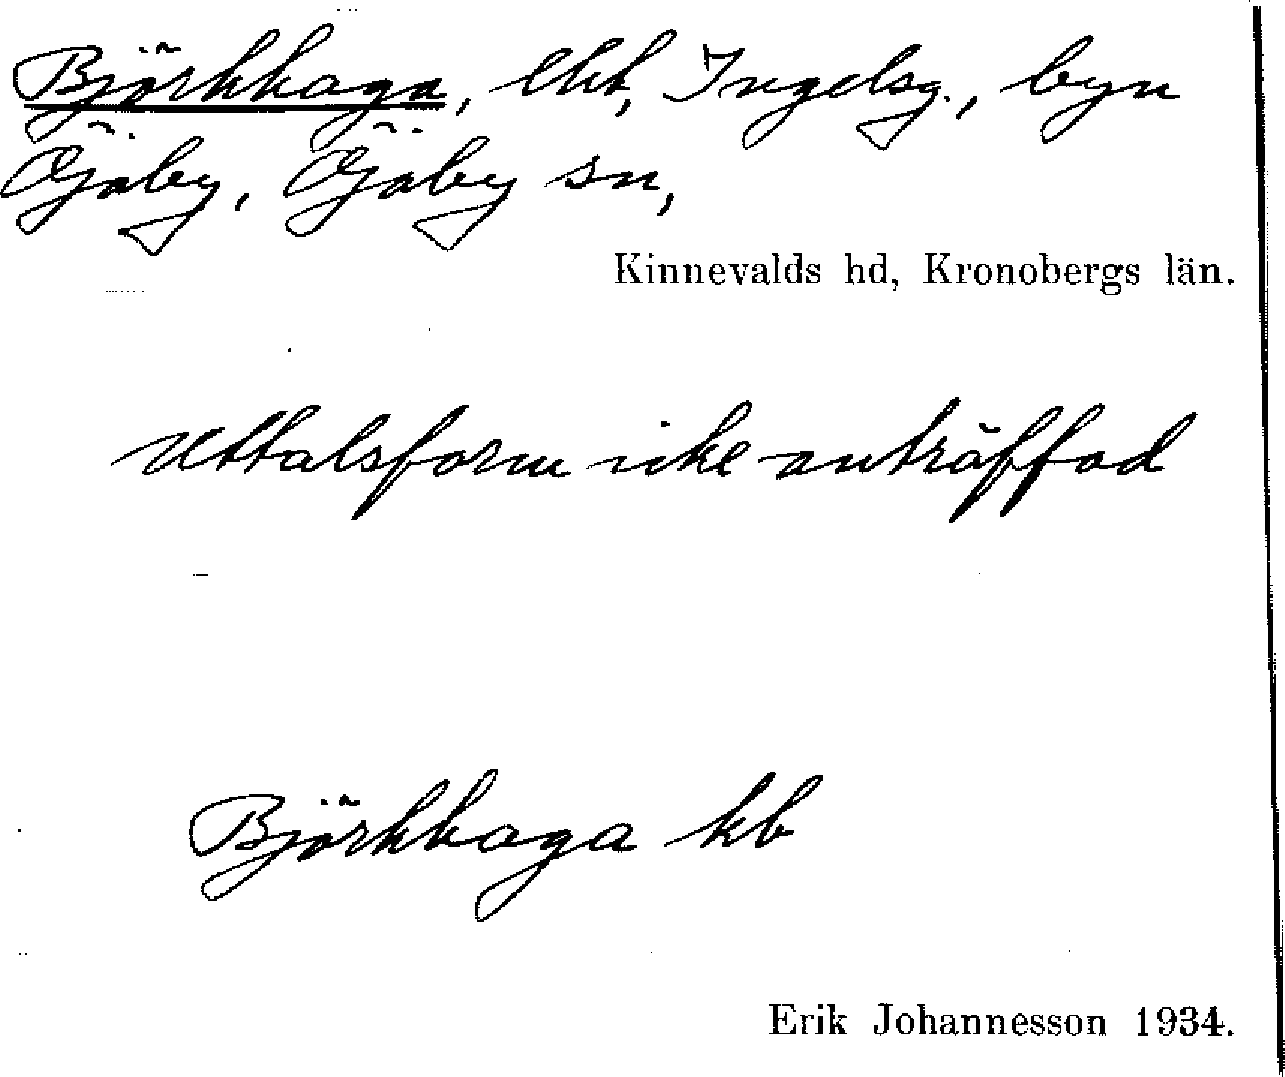 Björkhaga, lht, Ingelsg., byn
Öjaby, Öjaby sn,
Kinnevalds hd, Kronobergs län.
Uttalsform icke anträffad
Björkhaga kb
Erik Johannesson 1934.